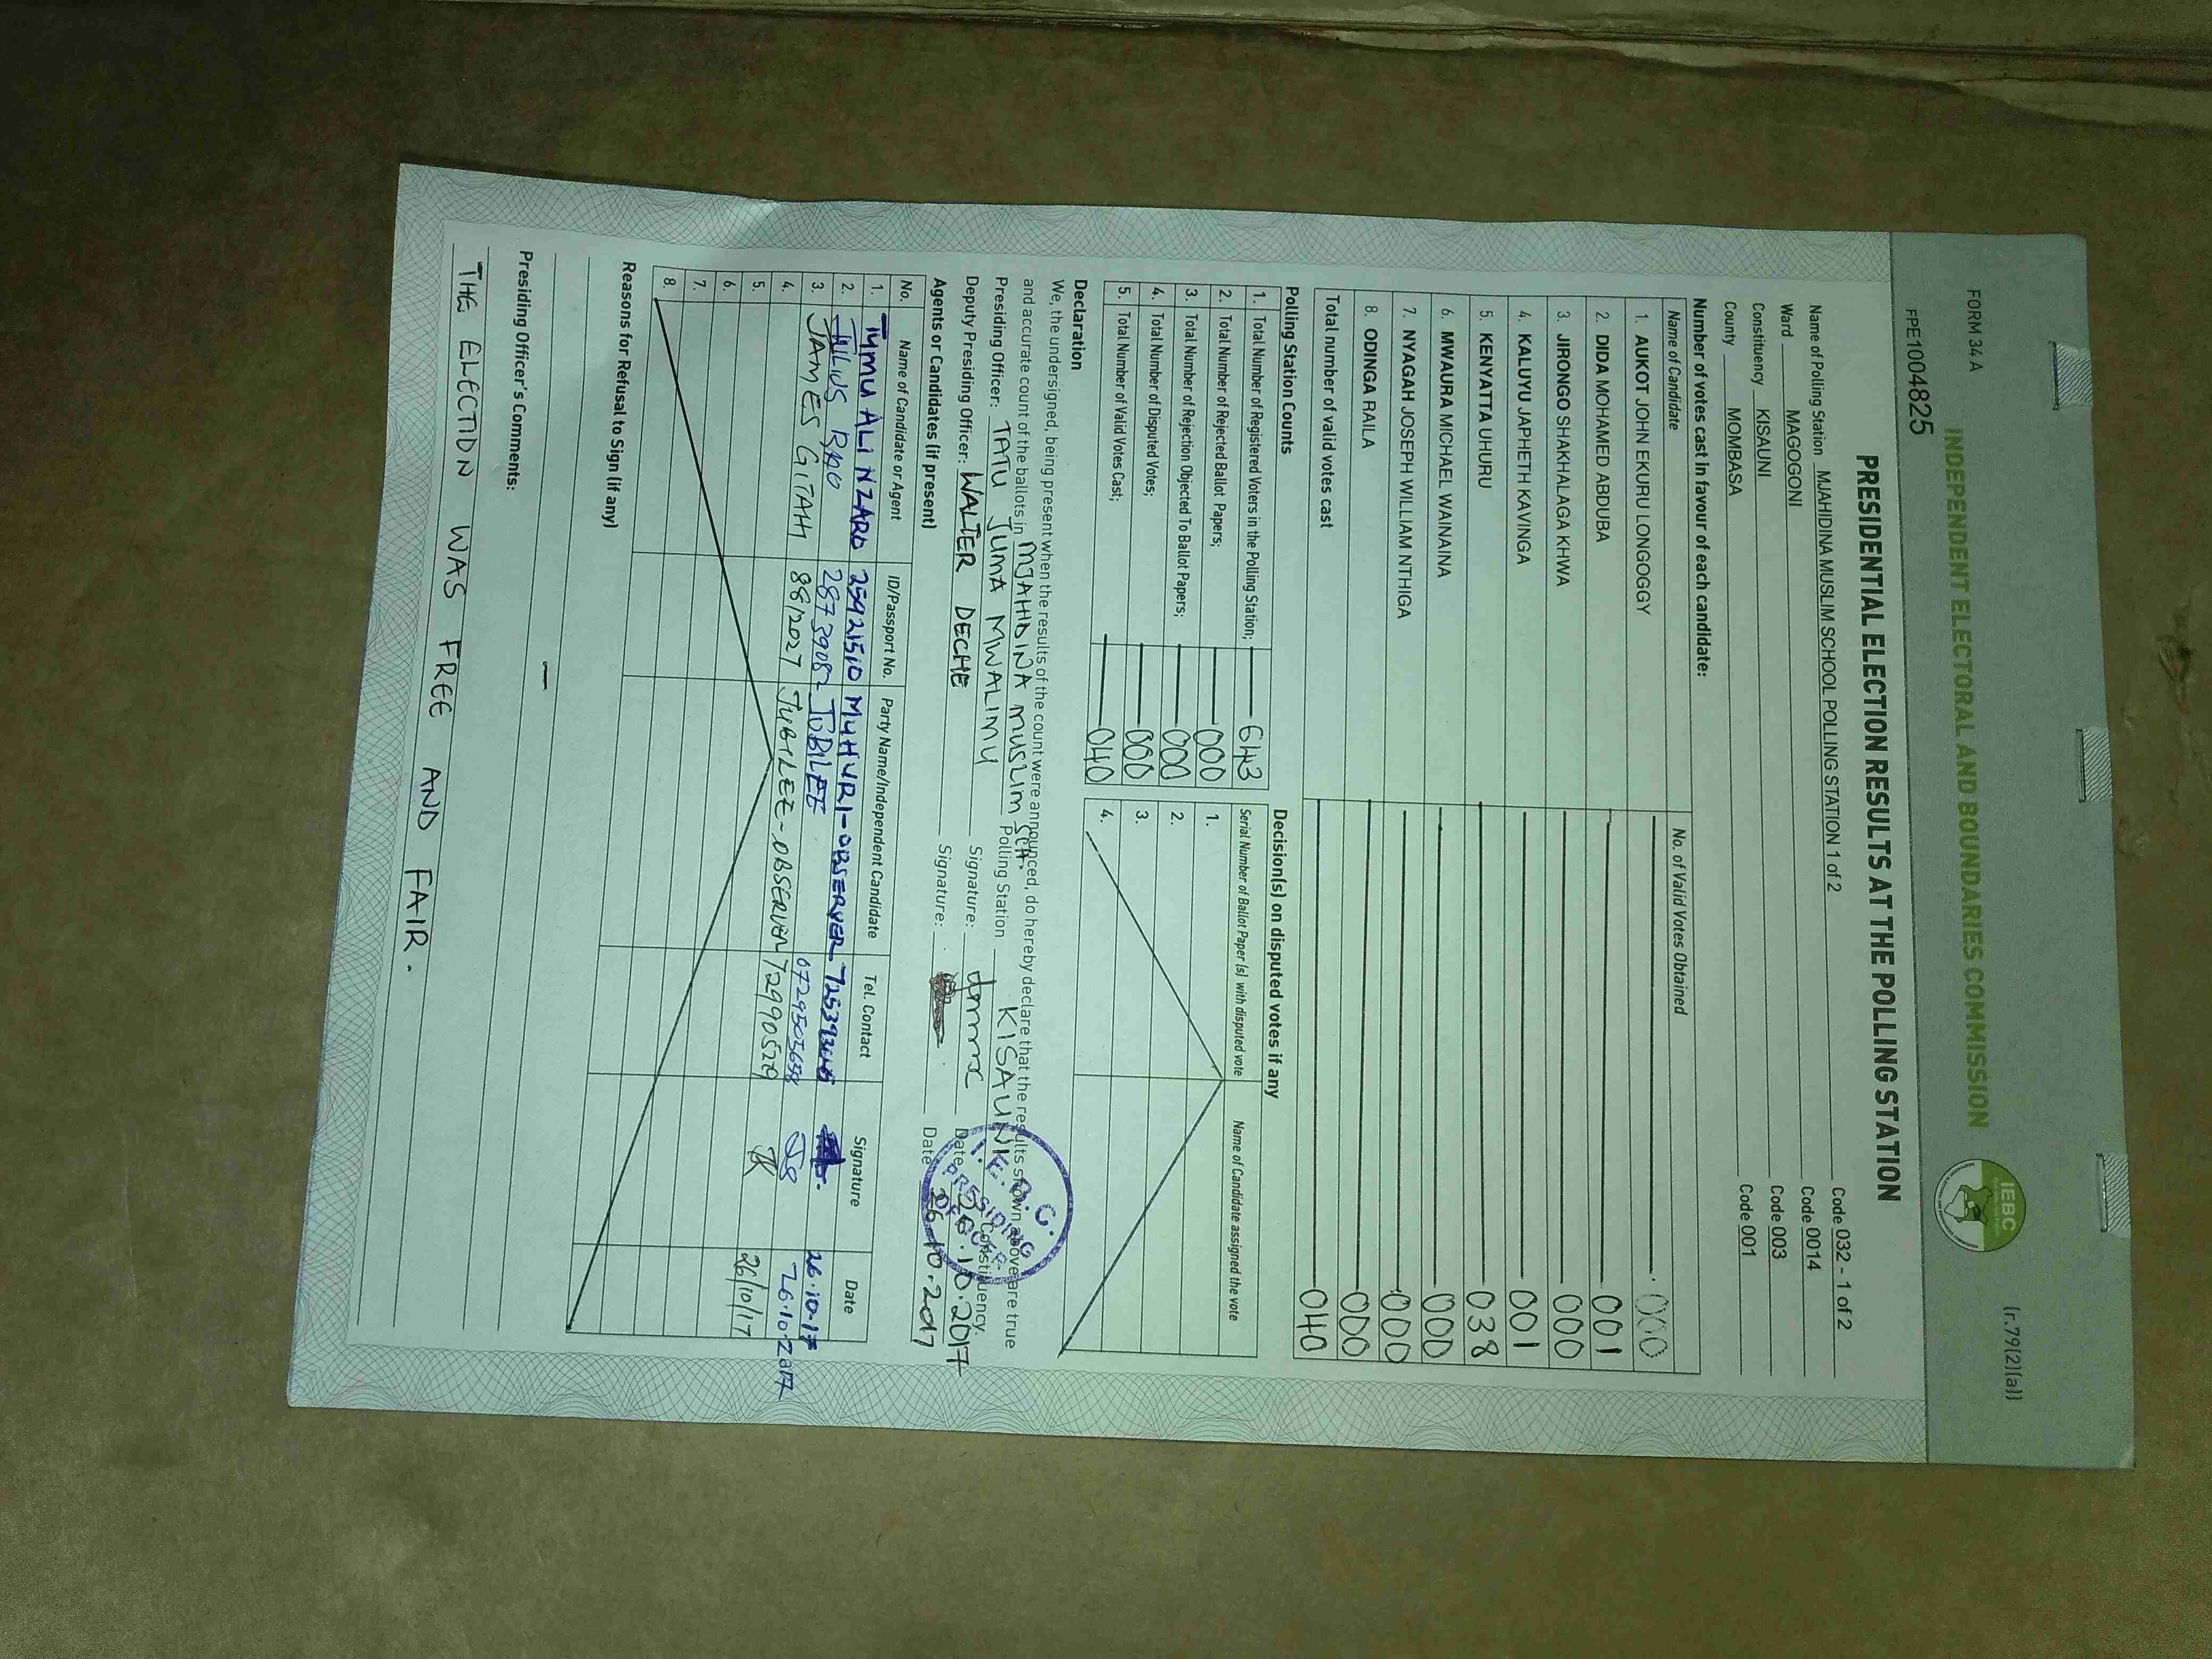 FORM 34 A
(r.79(2)(a))
INDEPENDENT ELECTORAL AND BOUNDARIES COMMISSION
IEBC
FPE1004825
PRESIDENTIAL ELECTION RESULTS AT THE POLLING STATION
Name of Polling Station MJAHIDINA MUSLIM SCHOOL POLLING STATION 1 of 2 Code 032 - 1 of 2
Ward MAGOGONI Code 0014
Constituency KISAUNI Code 003
County MOMBASA Code 001
Number of votes cast in favour of each candidate:
Name of Candidate No. of Valid Votes Obtained
1. AUKOT JOHN EKURU LONGOGGY 000
2. DIDA MOHAMED ABDUBA 001
3. JIRONGO SHAKHALAGA KHWA 000
4. KALUYU JAPHETH KAVINGA 001
5. KENYATTA UHURU 038
6. MWAURA MICHAEL WAINAINA 000
7. NYAGAH JOSEPH WILLIAM NTHIGA 000
8. ODINGA RAILA 000
Total number of valid votes cast 040
Polling Station Counts
1. Total Number of Registered Voters in the Polling Station; 643
2. Total Number of Rejected Ballot Papers; 000
3. Total Number of Rejection Objected To Ballot Papers; 000
4. Total Number of Disputed Votes; 000
5. Total Number of Valid Votes Cast; 040
Decision(s) on disputed votes if any
Serial Number of Ballot Paper (s) with disputed vote Name of Candidate assigned the vote
1.
2.
3.
4.
Declaration
We, the undersigned, being present when the results of the count were announced, do hereby declare that the results shown above are true
and accurate count of the ballots in MJAHDINA MUSLIM SCH. Polling Station KISAUNI Constituency.
Presiding Officer: TATU JUMA MWALIMU Signature: Date 26.10.2017
Deputy Presiding Officer: WALTER DECHE Signature: Date 26.10.2017
I.E.B.C.
PRESIDING
OFFICER
Agents or Candidates (if present)
No. Name of Candidate or Agent ID/Passport No. Party Name/Independent Candidate Tel. Contact Signature Date
1. ALI NZARO 25921510 MUHURI-OBSERVER 26.10.17
2. JULIUS 28739082 JUBILEE 0729505658 26.10.2017
3. JAMES GITAH 88/2027 JUBILEE-OBSERVER 729905279 26/10/17
4.
5.
6.
7.
8.
Reasons for Refusal to Sign (if any)
—
Presiding Officer's Comments:
THE ELECTION WAS FREE AND FAIR.